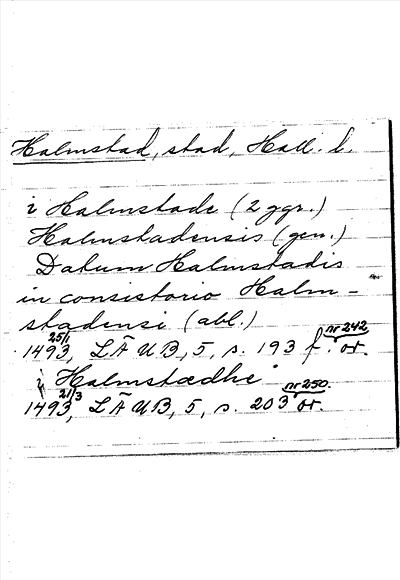 Halmstad, stad, Hall. l.
i Halmstade (2 ggr.)
Halmstadensis (gen.)
Datum Halmstadis
in consistorio Halm-
stadensi (abl.)
25/1 nr 242
1493, LÄUB, 5, s. 193 f. or.
i Halmstædhe
21/3 nr 250.
1493, LÄUB, 5, s. 203 or.